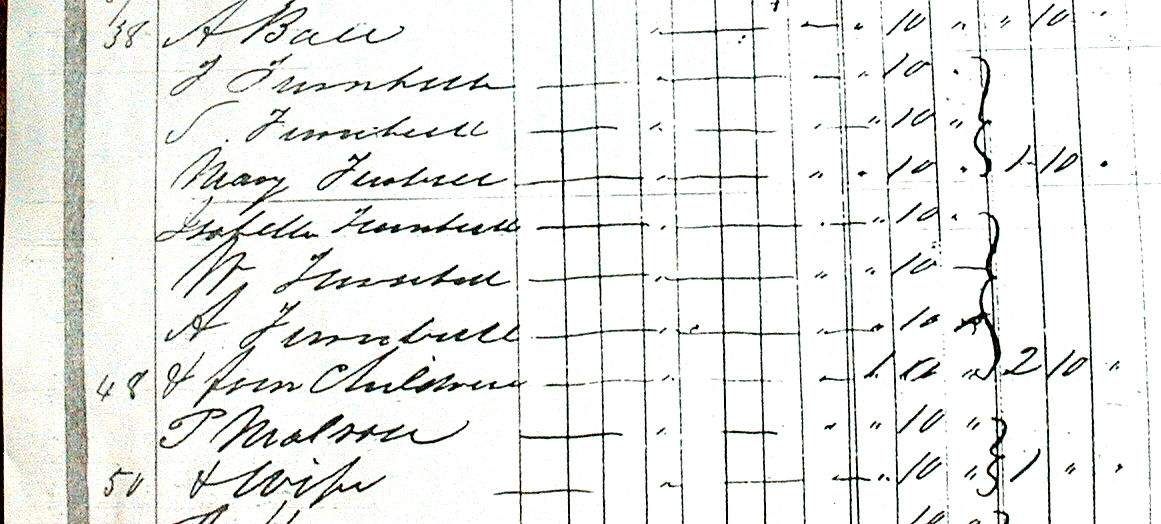 38 A Ball " " " 10 " " 10 "
J Turnbull " " 10 "
S. Turnbull " " " 10 "
Mary Turnbull " " " 10 " 1 10 "
Isabella Turnbull " " " 10 "
W Turnbull " " " 10
A Turnbull " " " 10
48 & four Children " 1 10 " 2 10 "
P " " " 10 "
50 & Wife " " 10 " 1 " "